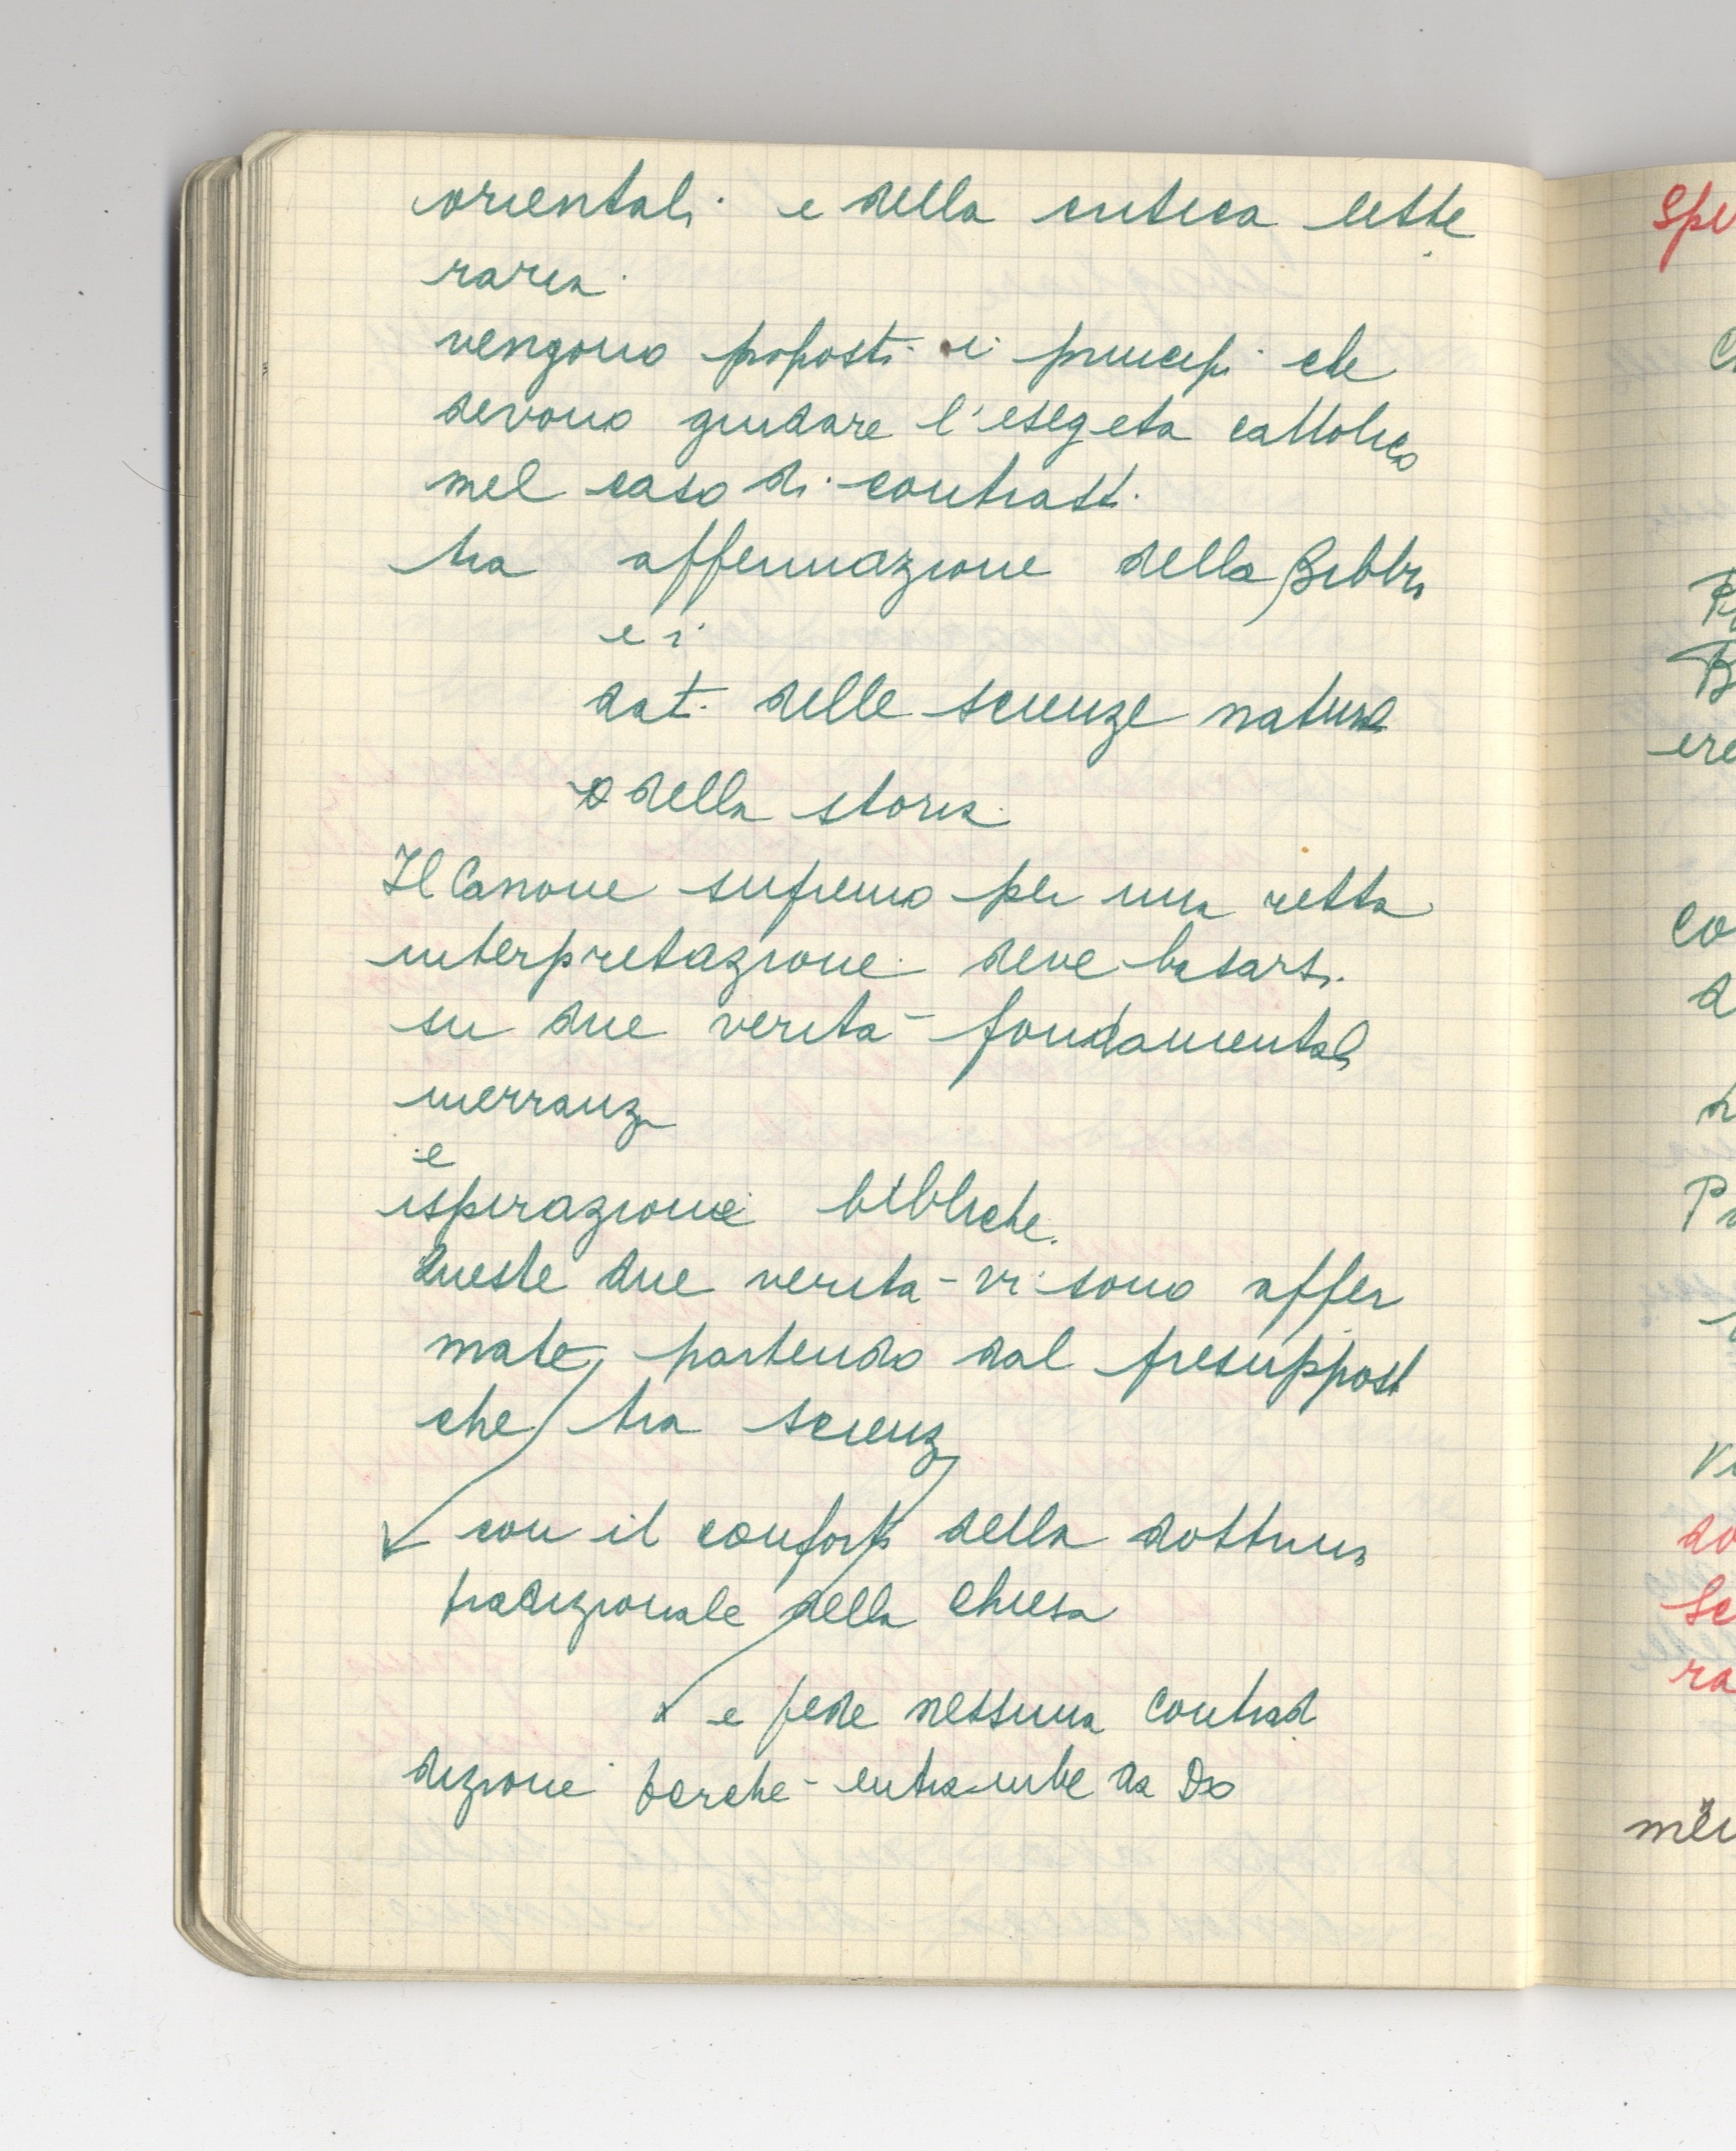 orientali e della critica lette
raria.
vengono proposti i principi che
devono guidare l'esegeta cattolico
nel caso di contrasti
tra affermazione della Bibbia
e i
dati delle scienze naturali
o della storia.
Il Canone supremo per una retta
interpretazione deve basarsi
su due verità fondamentali
inerranza
e
ispirazione bibliche.
Queste due verità vi sono affer
mate, partendo dal presupposto
che tra scienza
con il conforto della dottrina
tradizionale della Chiesa
e fede nessuna contrad
dizione perchè entrambe da Dio
spe
C
ere
co
d
Pr
Vi
do
Sc
ra